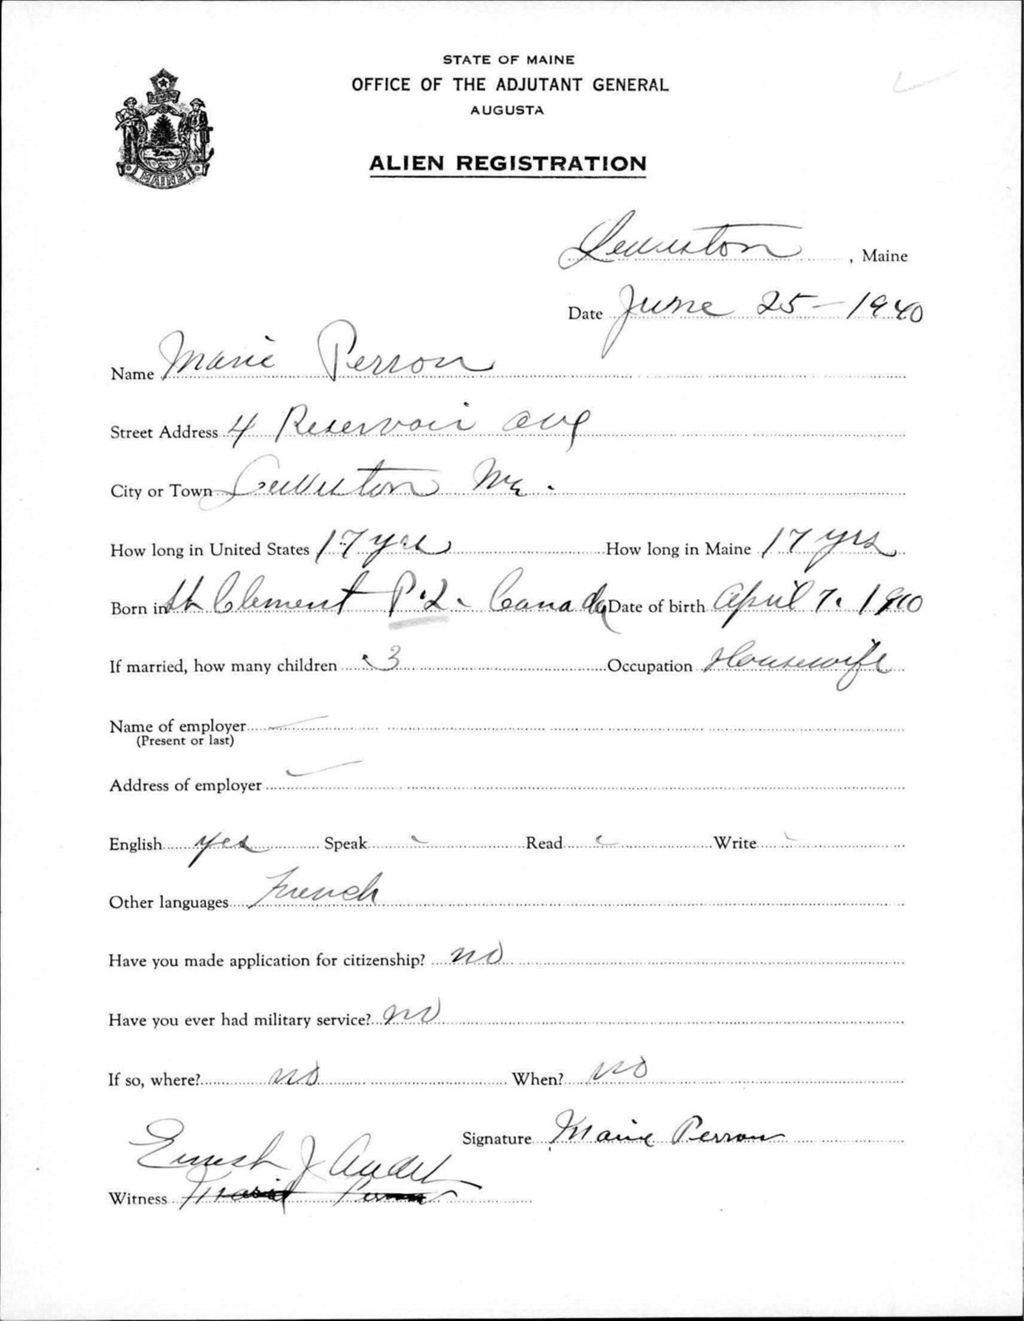 STATE OF MAINE
OFFICE OF THE ADJUTANT GENERAL
AUGUSTA
MAINE
ALIEN REGISTRATION
Lewiston, Maine
Date June 25 - 1940
Name Marie Perron
Street Address 4 Reservoir Ave
City or Town Lewiston Me.
How long in United States 17 yrs How long in Maine 17 yrs
Born in St Clement P.Q. Canada Date of birth April 7. 1910
If married, how many children 3 Occupation Housewife
Name of employer
(Present or last)
Address of employer
English yes Speak Read Write
Other languages French
Have you made application for citizenship? no
Have you ever had military service? no
If so, where? no When? no
Signature Marie Perron
Ernest J Audet
Witness Marie Perron